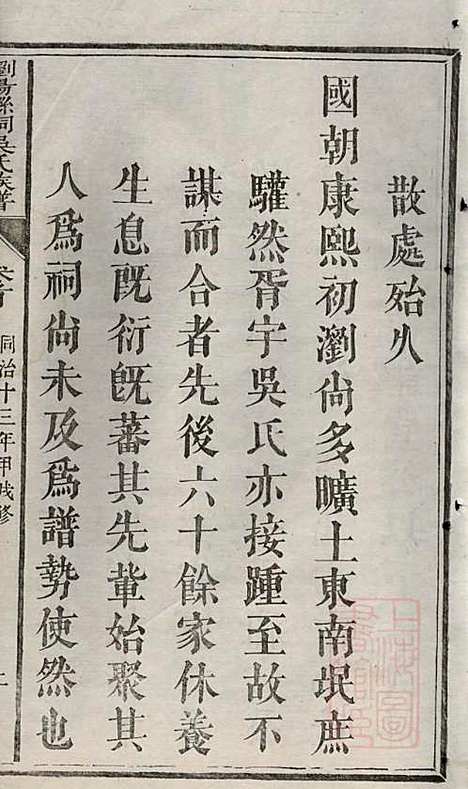 散處殆久
國朝康熙初瀏尚多曠土東南氓庶
驩然胥宇吳氏亦接踵至故不
謀而合者先後六十餘家休養
生息既衍既蕃其先輩始聚其
人爲祠尚未及爲譜勢使然也
瀏陽縣祠吳氏族譜
卷首
同治十三年甲戌修
上海圖書館藏